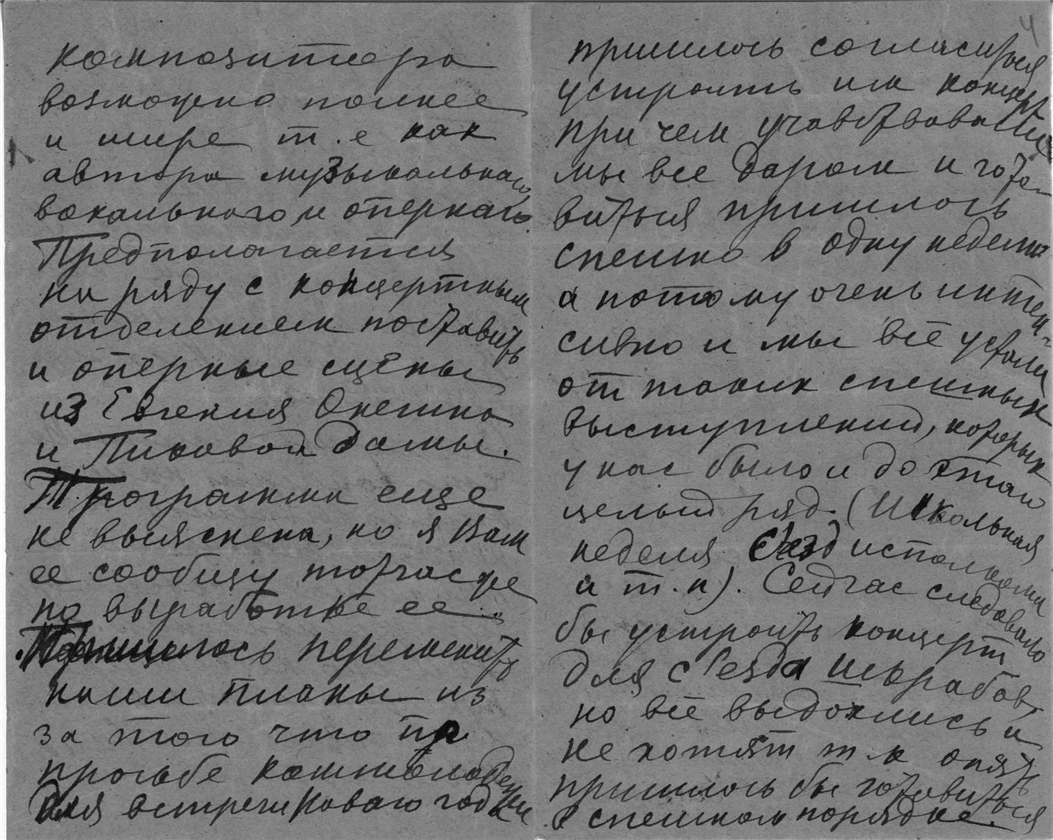 композитора
возможно полнее
и шире т.е как
автора музыкальнаго
вокальнаго и опернаго.
Предполагается
на ряду с концертным
отделением поставить
и оперные сцены
из Евгения Онегина
и Пиковой Дамы.
Программа еще
не выяснена, но я Вам
ее сообщу тотчас же
по выработке ее.
Пришлось переменить
наши планы из
за того что по
просьбе
для встречи Новаго года
4
пришлось согласиться
устроить им концерт
при чем участвовали
мы все даром и гото-
виться пришлось
спешно в одну неделю
а потому очень интен-
сивно и мы все устали
от таких спешных
выступлений, которых
у нас было и до этаго
целый ряд. (Школьная
неделя Съезд исполкома
и т.п). Сейчас следовало
бы устроить концерт
для съезда шкрабов,
но все выдохлись и
не хотят т.к опять
пришлось бы готовиться
в спешном порядке.